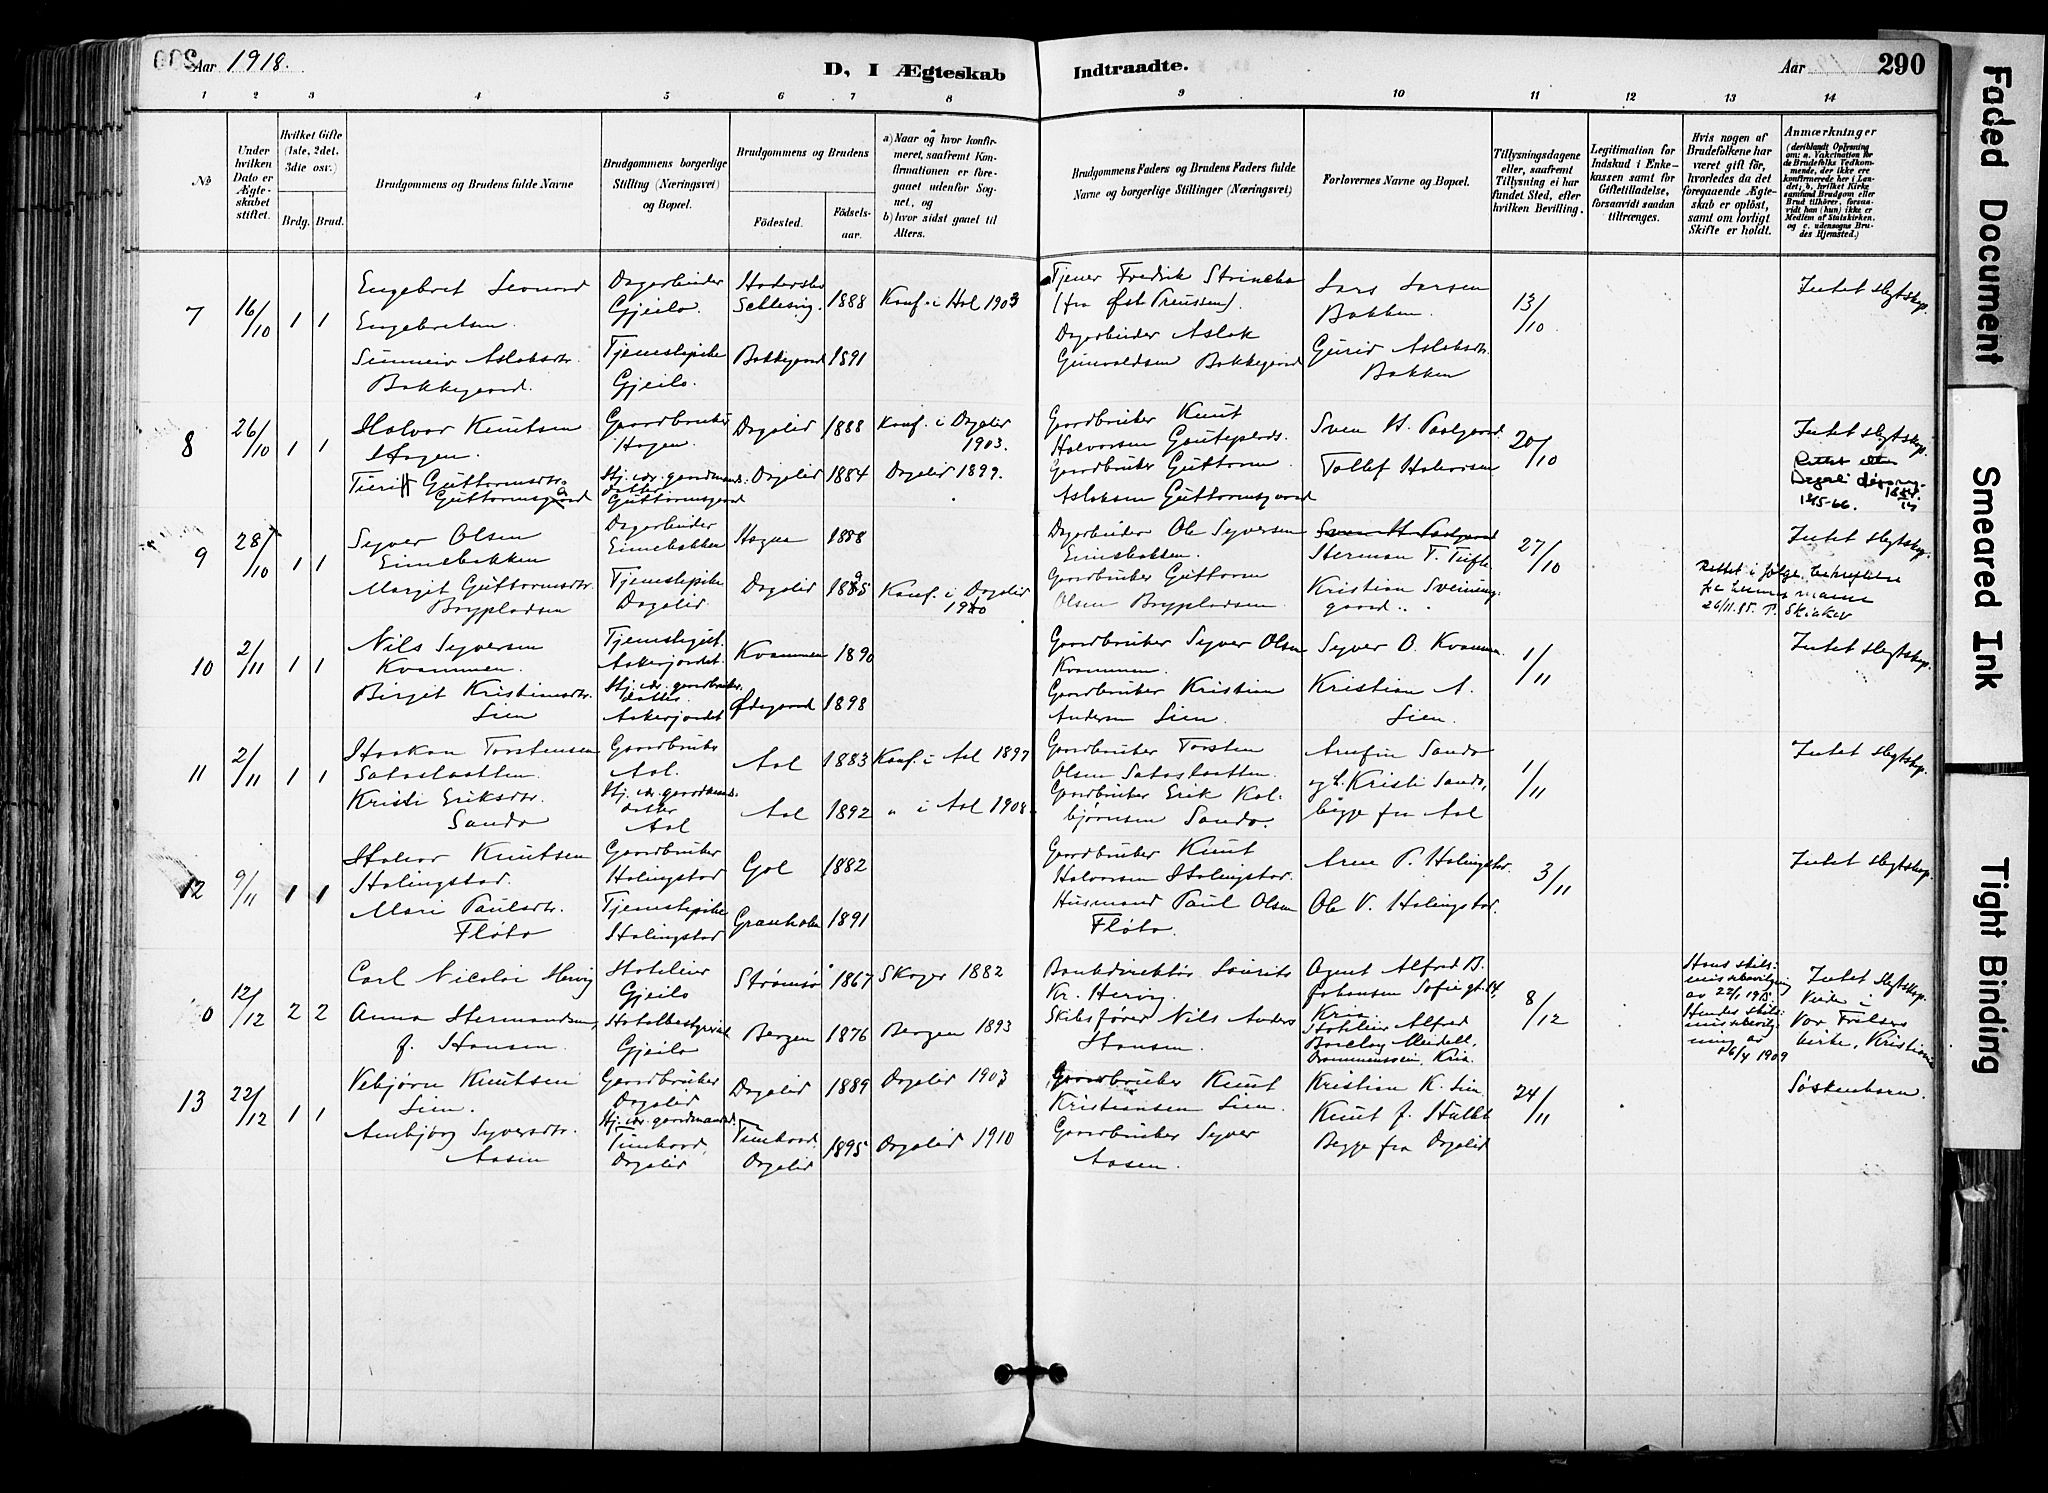 Aar 1918.
D, I Ægteskab Indtraadte.
Aar
290
1 2 3 4 5 6 7 8 9 10 11 12 13 14
№
Under hvilken Dato er Ægteskabet stiftet.
Hvilket Gifte (1ste, 2det, 3die osv.)
Brdg. Brud.
Brudgommens og Brudens fulde Navne
Brudgommens borgerlige Stilling (Næringsvei) og Bopæl.
Brudgommens og Brudens
Födested.
Födselsaar.
a) Naar og hvor konfirmeret, saafremt Konfirmationen er foregaaet udenfor Sognet, og
b) hvor sidst gaaet til Alters.
Brudgommens Faders og Brudens Faders fulde Navne og borgerlige Stillinger (Næringsvei)
Forlovernes Navne og Bopæl.
Tillysningsdagene eller, saafremt Tillysning ei har fundet Sted, efter hvilken Bevilling.
Legitimation for Indskud i Enkekassen samt for Giftetilladelse, forsaavidt saadan tiltrænges.
Hvis nogen af Brudefolkene har været gift før, hvorledes da det foregaaende Ægteskab er opløst, samt om lovligt Skifte er holdt.
Anmærkninger
(deriblandt Oplysning om: a. Vakcination for de Brudefolks Vedkommende, der ikke ere konfirmerede her i Landet; b, hvilket Kirkesamfund Brudgom eller Brud tilhører, forsaavidt han (hun) ikke er Medlem af Statskirken. og c. udensogns Brudes Hjemsted.)
7 16/10 1 1
Engebret Leonord
Engebretsen.
Sunneiv Aslaksdtr.
Bakkegaard.
Dagarbeider
Gjeilo
Tjenestepike
Gjeilo.
Schlesvig. 1888
Bakkegaard 1891
Konf. i Hol 1903
Tjener Fredrik
(fra Øst Preussen).
Dagarbeider Aslak
Gunvaldsen Bakkegaard
Lars Larsen
Bakken.
Gurid Aslaksdtr.
Bakken
13/10
Intet slegtskap.
8 26/10 1 1
Halvor Knutsen
Hagen.
Turid Guttormsdtr.
Guttormsgaard
Gaardbruker
Hagen.
Hj. v. gaardmands datter
Guttormsgaard
Dagalid 1888
Dagalid 1884
Konf. i Dagalid
1903.
Dagalid 1899.
Gaardbruker Knut
Halvorsen
Gaardbruker Guttorm
Aslaksen Guttormsgaard
Sven H. Paalgaard
Tollef Halvorsen
20/10
Intet slegtskap.
1865-66.
9 28/10 1 1
Syver Olsen
Eimebakken
Margit Guttormsdtr.
Brypladsen
Dagarbeider
Eimebakken
Tjenestepike
Dagalid.
Hagen 1888
Dagalid 1895
Konf. i Dagalid
1910
Dagarbeider Ole Syversen
Eimebakken.
Gaardbruker Guttorm
Olsen Brypladsen.
Sven H. Paalgaard
Herman T. Tufte
Kristian Sveinungaard.
27/10
Rettet i følge bekreftelse
26/11.85. P. Skjaker
Intet slegtskap.
10 2/11 1 1
Nils Syversen
Kvammen.
Birgit Kristiansdtr.
Lien
Tjenestegut.
Aakerjordet.
Hj. v. gaardbruker. datter
Aakerjordet
Kvammen 1890
Ødegaard 1898
Gaardbruker Syver Olsen
Kvammen.
Gaardbruker Kristian
Andersen Lien.
Syver O. Kvammen
Kristian A.
Lien.
1/11
Intet slegtskap.
11 2/11 1 1
Haakon Torstensen
Sataslaatten.
Kristi Eriksdtr.
Sando
Gaardbruker
Aal.
Hj. v. gaardmands. datter
Aal
Aal 1883
Aal 1892
Konf. i Aal 1897
" i Aal 1908.
Gaardbruker Torsten
Olsen Sataslaatten.
Gaardbruker Erik Kolbjørnsen Sando.
Arnfin Sando
og Kristi Sando,
begge fra Aal
1/11
Intet slegtskap.
12 9/11 1 1
Halvor Knutsen
Halingstad.
Mari Paulsdtr.
Fløto
Gaardbruker
Halingstad
Tjenestepike
Halingstad
Gol 1882
Granholm 1891
Gaardbruker Knut
Halvorsen Halingstad.
Husmand Paul Olsen
Fløto.
Arne P. Halingstad.
Ole V. Halingstad.
3/11
Intet slegtskap.
0 12/12 2 2
Carl Nicolai Hervig
Anna Hermandsen,
f. Hansen.
Hoteleier
Gjeilo
Hotelbestyrerinde
Gjeilo
Strømsø 1867
Bergen 1876
Skoger 1882
Bergen 1893
Bankdirektør Laurits
Kr. Hervig.
Skibsfører Nils Anders
Hansen.
Agent Alfred B.
Johansen Sofiegt.
Kria
Hoteleier Alfred
Barclay Meidell,
Drammensvein, Kria.
8/12
Hans skilsmissebevilling
av 22/1 1915.
Hendes skilsmissebevilgning av
16/4 1909
Intet slegtskap.
Viete i
Vor Frelsers
kirke, Kristiania
13 22/12 1 1
Vebjørn Knutsen
Lien.
Ambjørg Syversdtr.
Aasen
Gaardbruker
Dagalid
Hj. v. gaardmandsd.
Dagalid
Dagalid 1889
Dagalid 1895
Dagalid 1903
Dagalid 1910
Gaardbruker Knut
Kristiansen Lien.
Gaardbruker Syver
Aasen.
Kristian K. Lien
Knut J.
Begge fra Dagalid
24/11
Søskenbarn.
Faded Document
Smeared Ink
Tight Binding